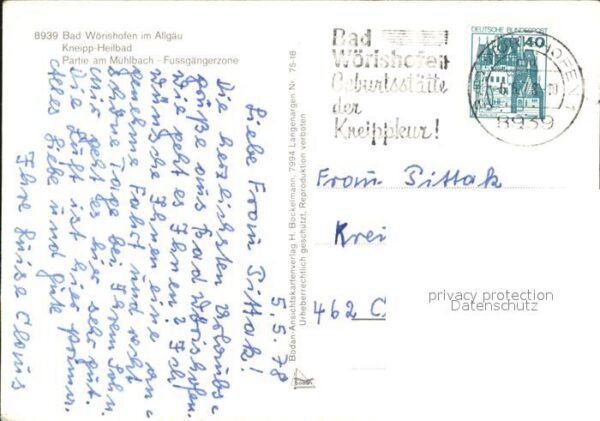 8939 Bad Wörishofen im Allgäu
Kneipp-Heilbad
Partie am Mühlbach - Fussgängerzone
5.5.78
Liebe Frau Pittak!
Die herzlichsten Urlaubs-
grüße aus Bad Wörishofen.
Wie geht es Ihnen? Ich
wünsche Ihnen eine an-
genehme Fahrt und recht
schöne Tage bei Ihrem Sohn.
Mir geht es hier sehr gut.
Die Luft ist hier prima.
Alles Liebe und Gute
Ihre Luise Claus
Bodan-Ansichtskartenverlag H. Bockelmann, 7994 Langenargen Nr. 75-18
Urheberrechtlich geschützt, Reproduktion verboten
Bodan
Bad
Wörishofen
Geburtsstätte
der
Kneippkur!
DEUTSCHE BUNDESPOST
40
8939
Frau Pittak
Krei
462 C
privacy protection
Datenschutz